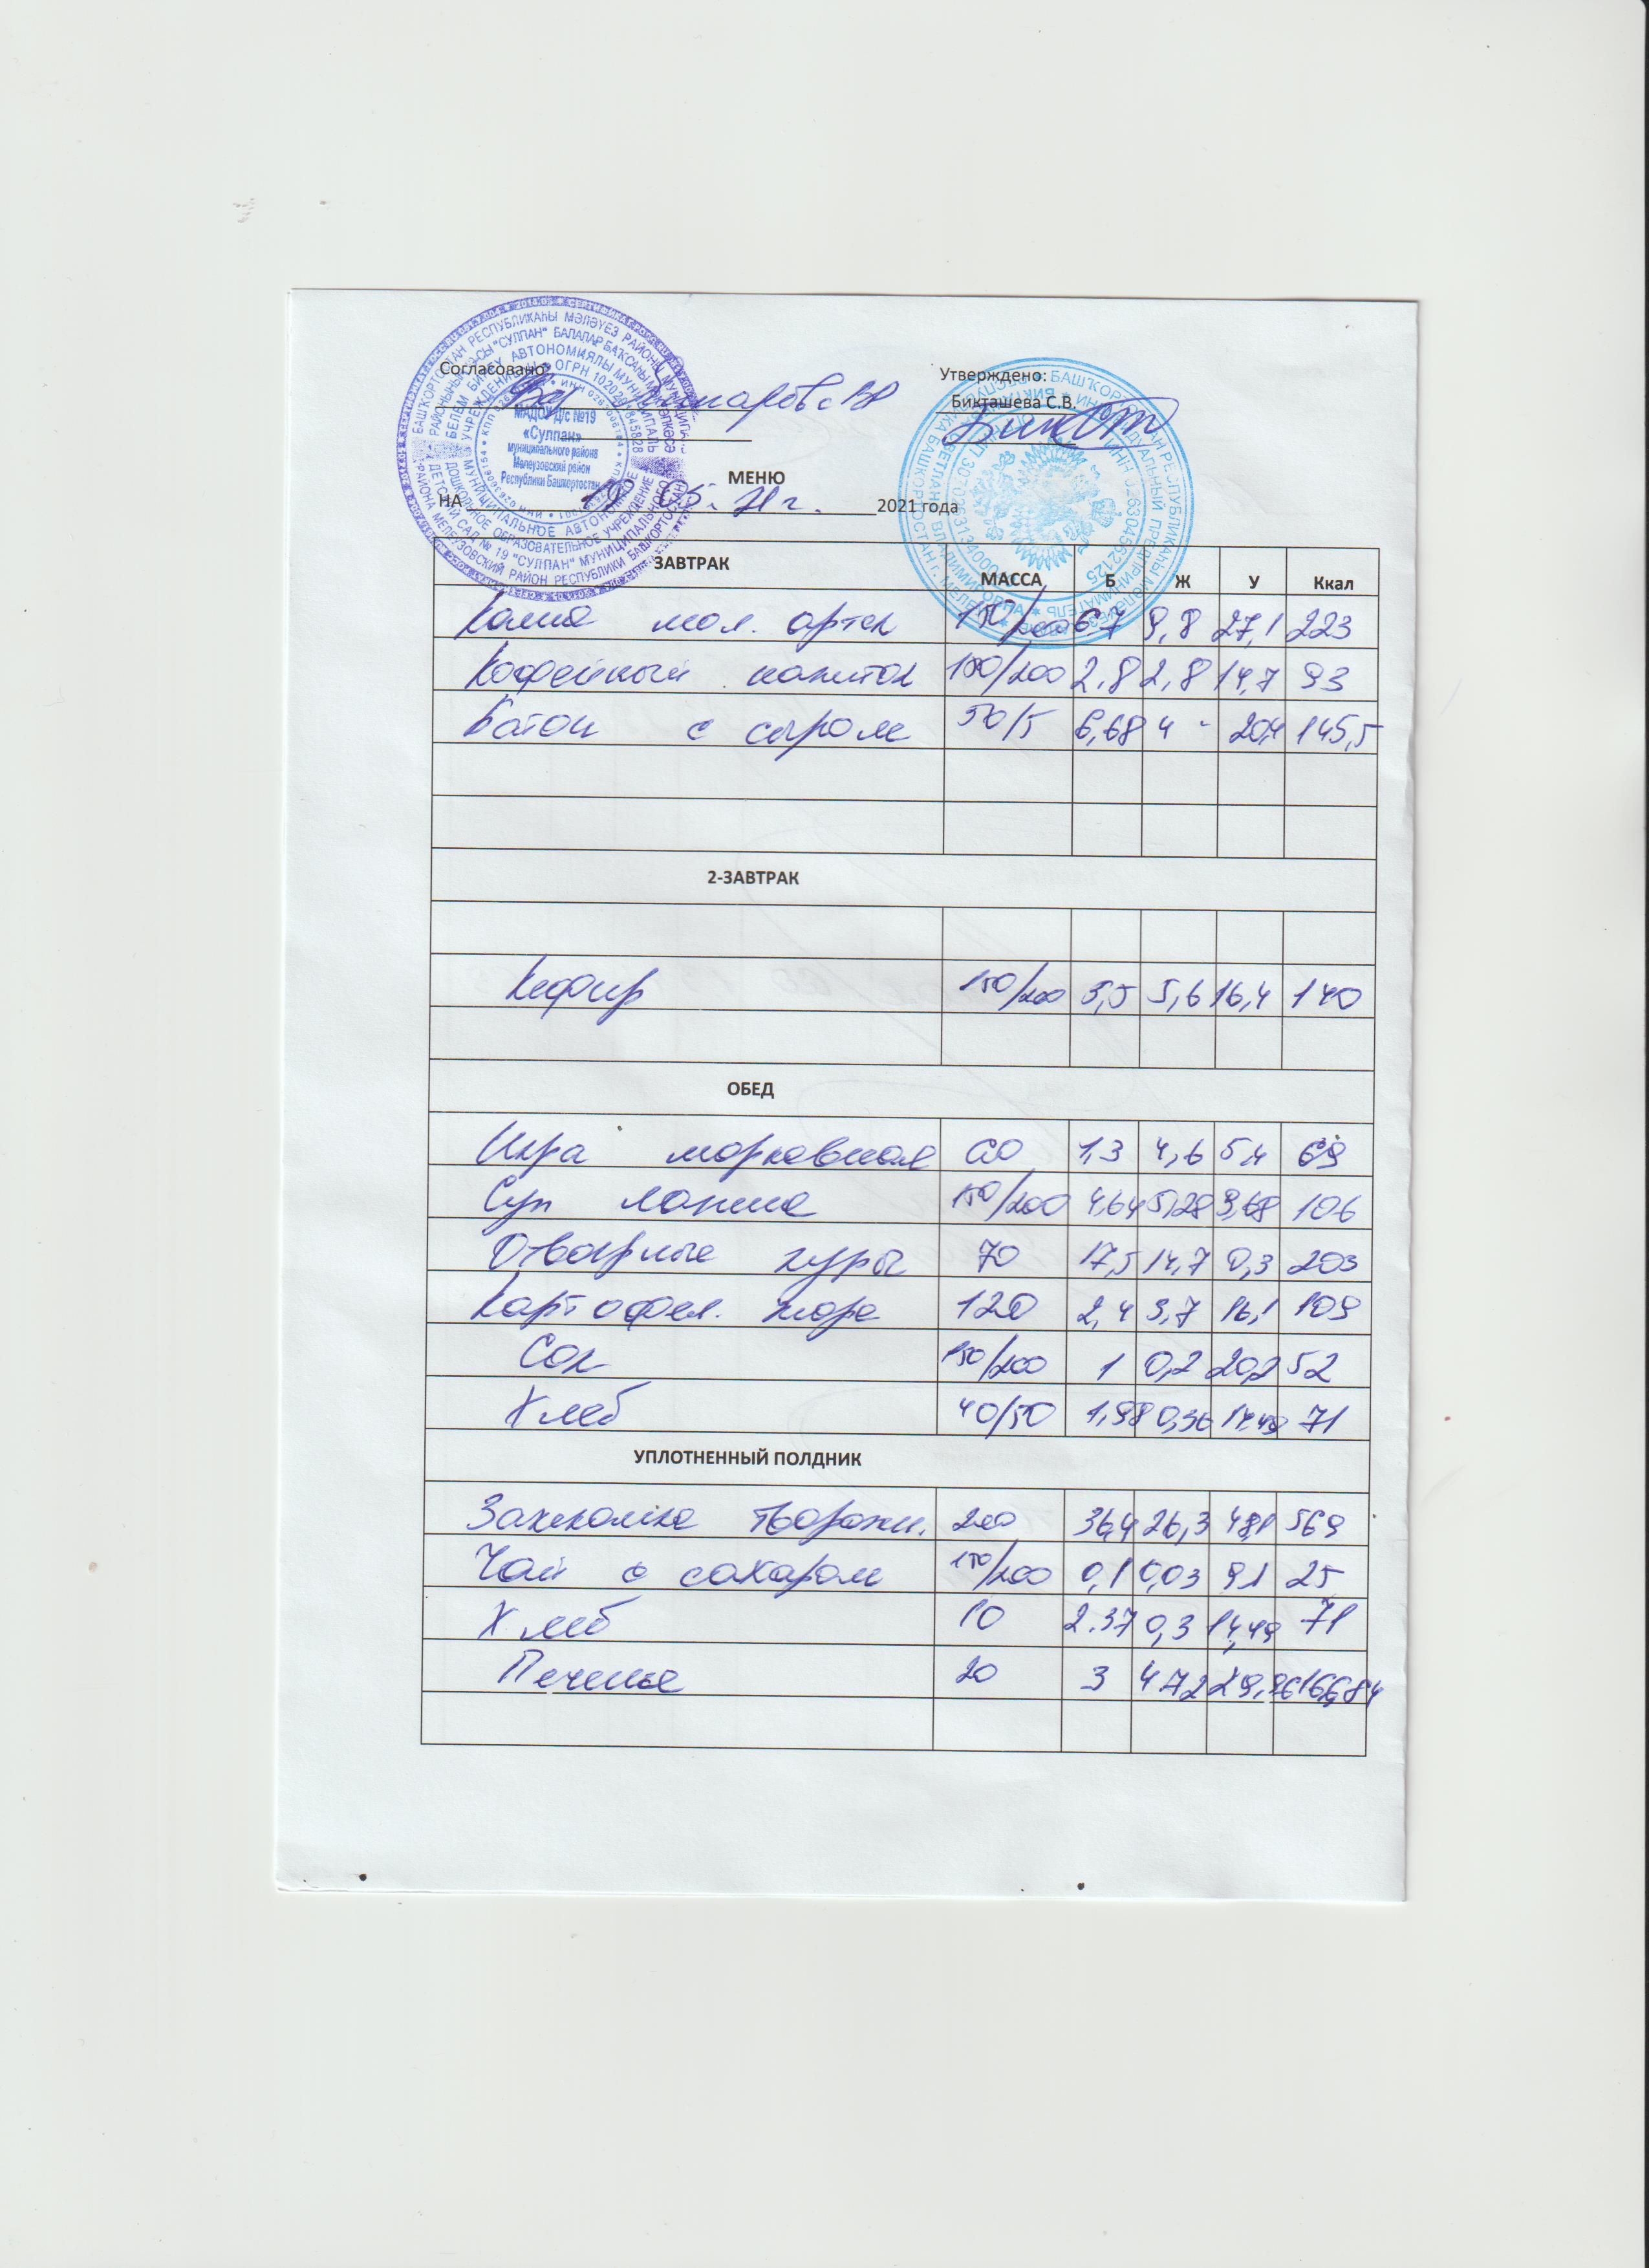 Согласовано:
Утверждено:
Бикташева С.В.
МАДОУ Д/с №19
«Сулпан»
муниципального района
Мелеузовский район
Республики Башкортостан
МЕНЮ
НА 05. 21 г. 2021 года
ЗАВТРАК МАССА Б Ж У Ккал
Каша мол. артек 150/200 6.7 9,8 27,1 223
Кофейный напиток 180/200 2.8 2,8 14,7 93
Батон с сыром 50/5 6,68 4 - 20,4 145,5
2-ЗАВТРАК
Кефир 150/200 5,5 5,6 16,4 140
ОБЕД
Икра морковная 60 1,3 4,6 5,4 69
Суп лапша 150/200 4,64 5,28 9,68 106
Отварные куры 70 17,5 14,7 0,3 203
Картофел. пюре 120 2,4 3,7 16,1 109
Сок 150/200 1 0,2 20,2 52
Хлеб 40/50 1,98 0,36 14,49 71
УПЛОТНЕННЫЙ ПОЛДНИК
Запеканка творожн. 200 36,4 26,3 48,1 569
Чай с сахаром 150/200 0,1 0,03 9,1 25
Хлеб 10 2.37 0,3 14,49 71
Печенье 20 3 4 72 29,96 166,84